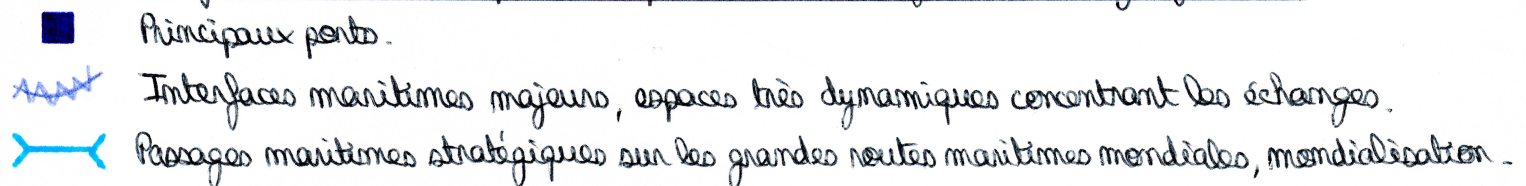 Principaux ports.
Interfaces maritimes majeurs, espaces très dynamiques concentrant les échanges.
Passages maritimes stratégiques sur les grandes routes maritimes mondiales, mondialisation.